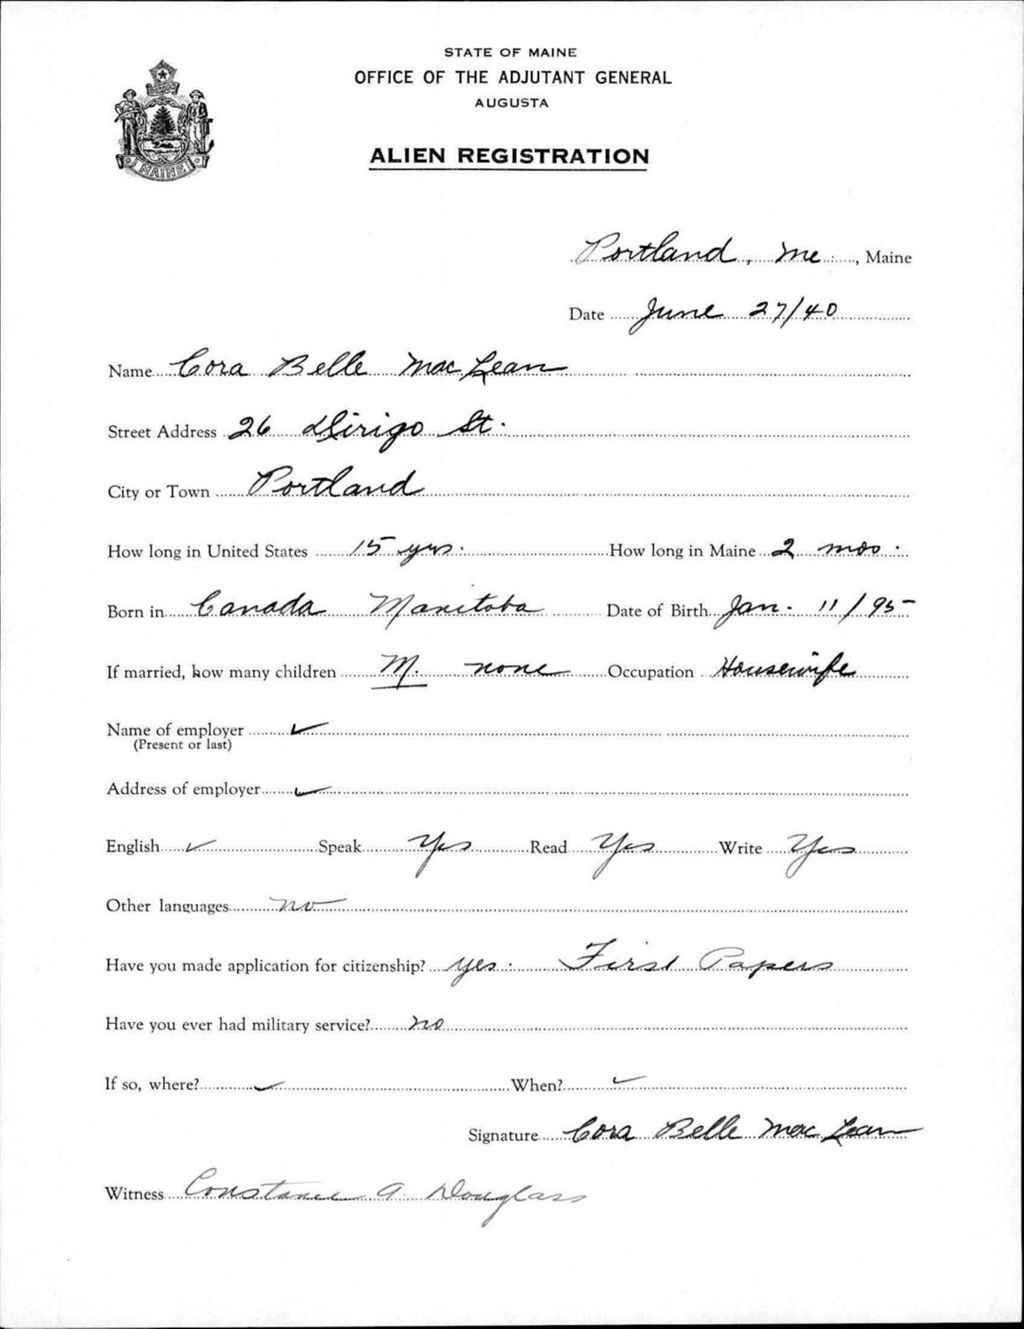 STATE OF MAINE
OFFICE OF THE ADJUTANT GENERAL
AUGUSTA
ALIEN REGISTRATION
MAINE
Portland, Me., Maine
Date June 27/40
Name Cora Belle MacLean
Street Address 26 Dirigo St.
City or Town Portland
How long in United States 15 yrs. How long in Maine 2 mos.
Born in Canada Manitoba Date of Birth Jan. 11/95
If married, how many children M. none Occupation Housewife
Name of employer ✓
(Present or last)
Address of employer ✓
English ✓ Speak Yes Read Yes Write Yes
Other languages no
Have you made application for citizenship? yes. First Papers
Have you ever had military service? no
If so, where? ✓ When? ✓
Signature Cora Belle MacLean
Witness Constance A. Douglass